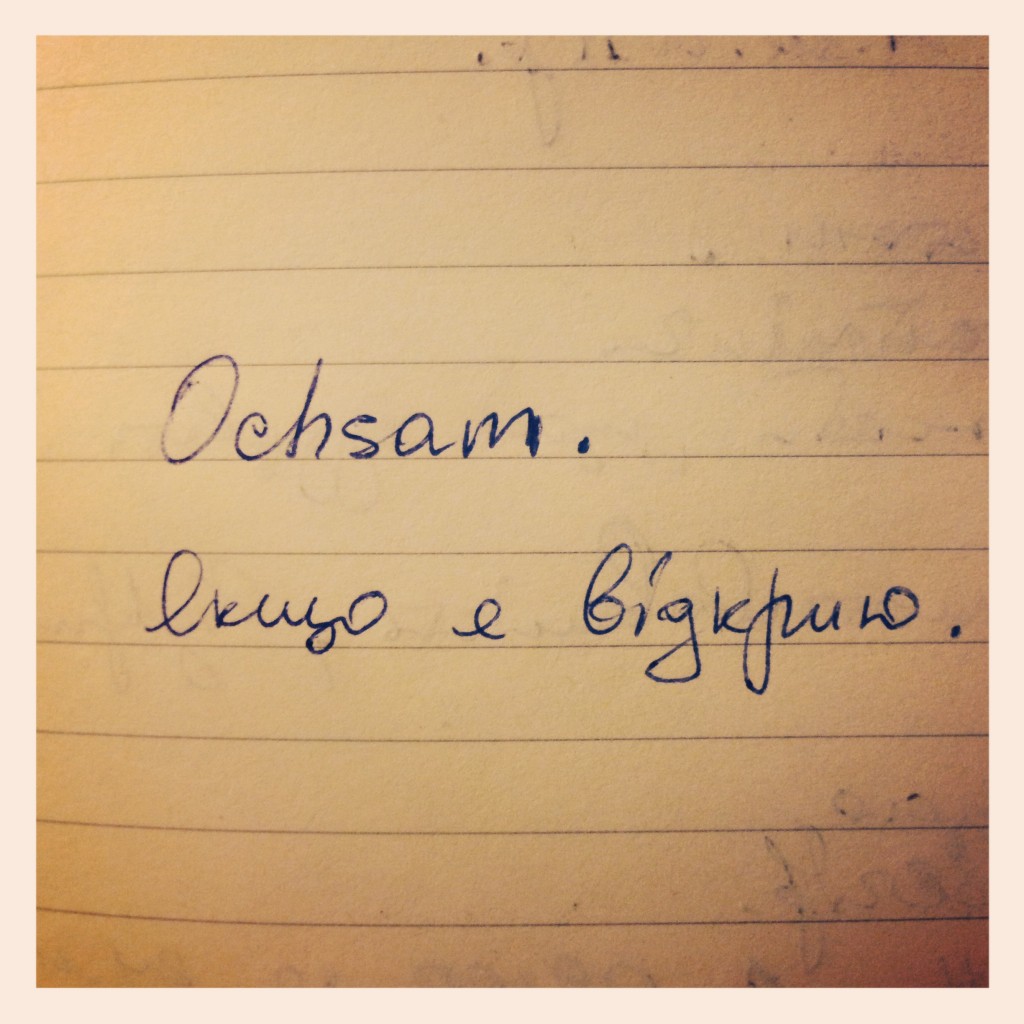 Ochsam.
Якщо я відкрию.